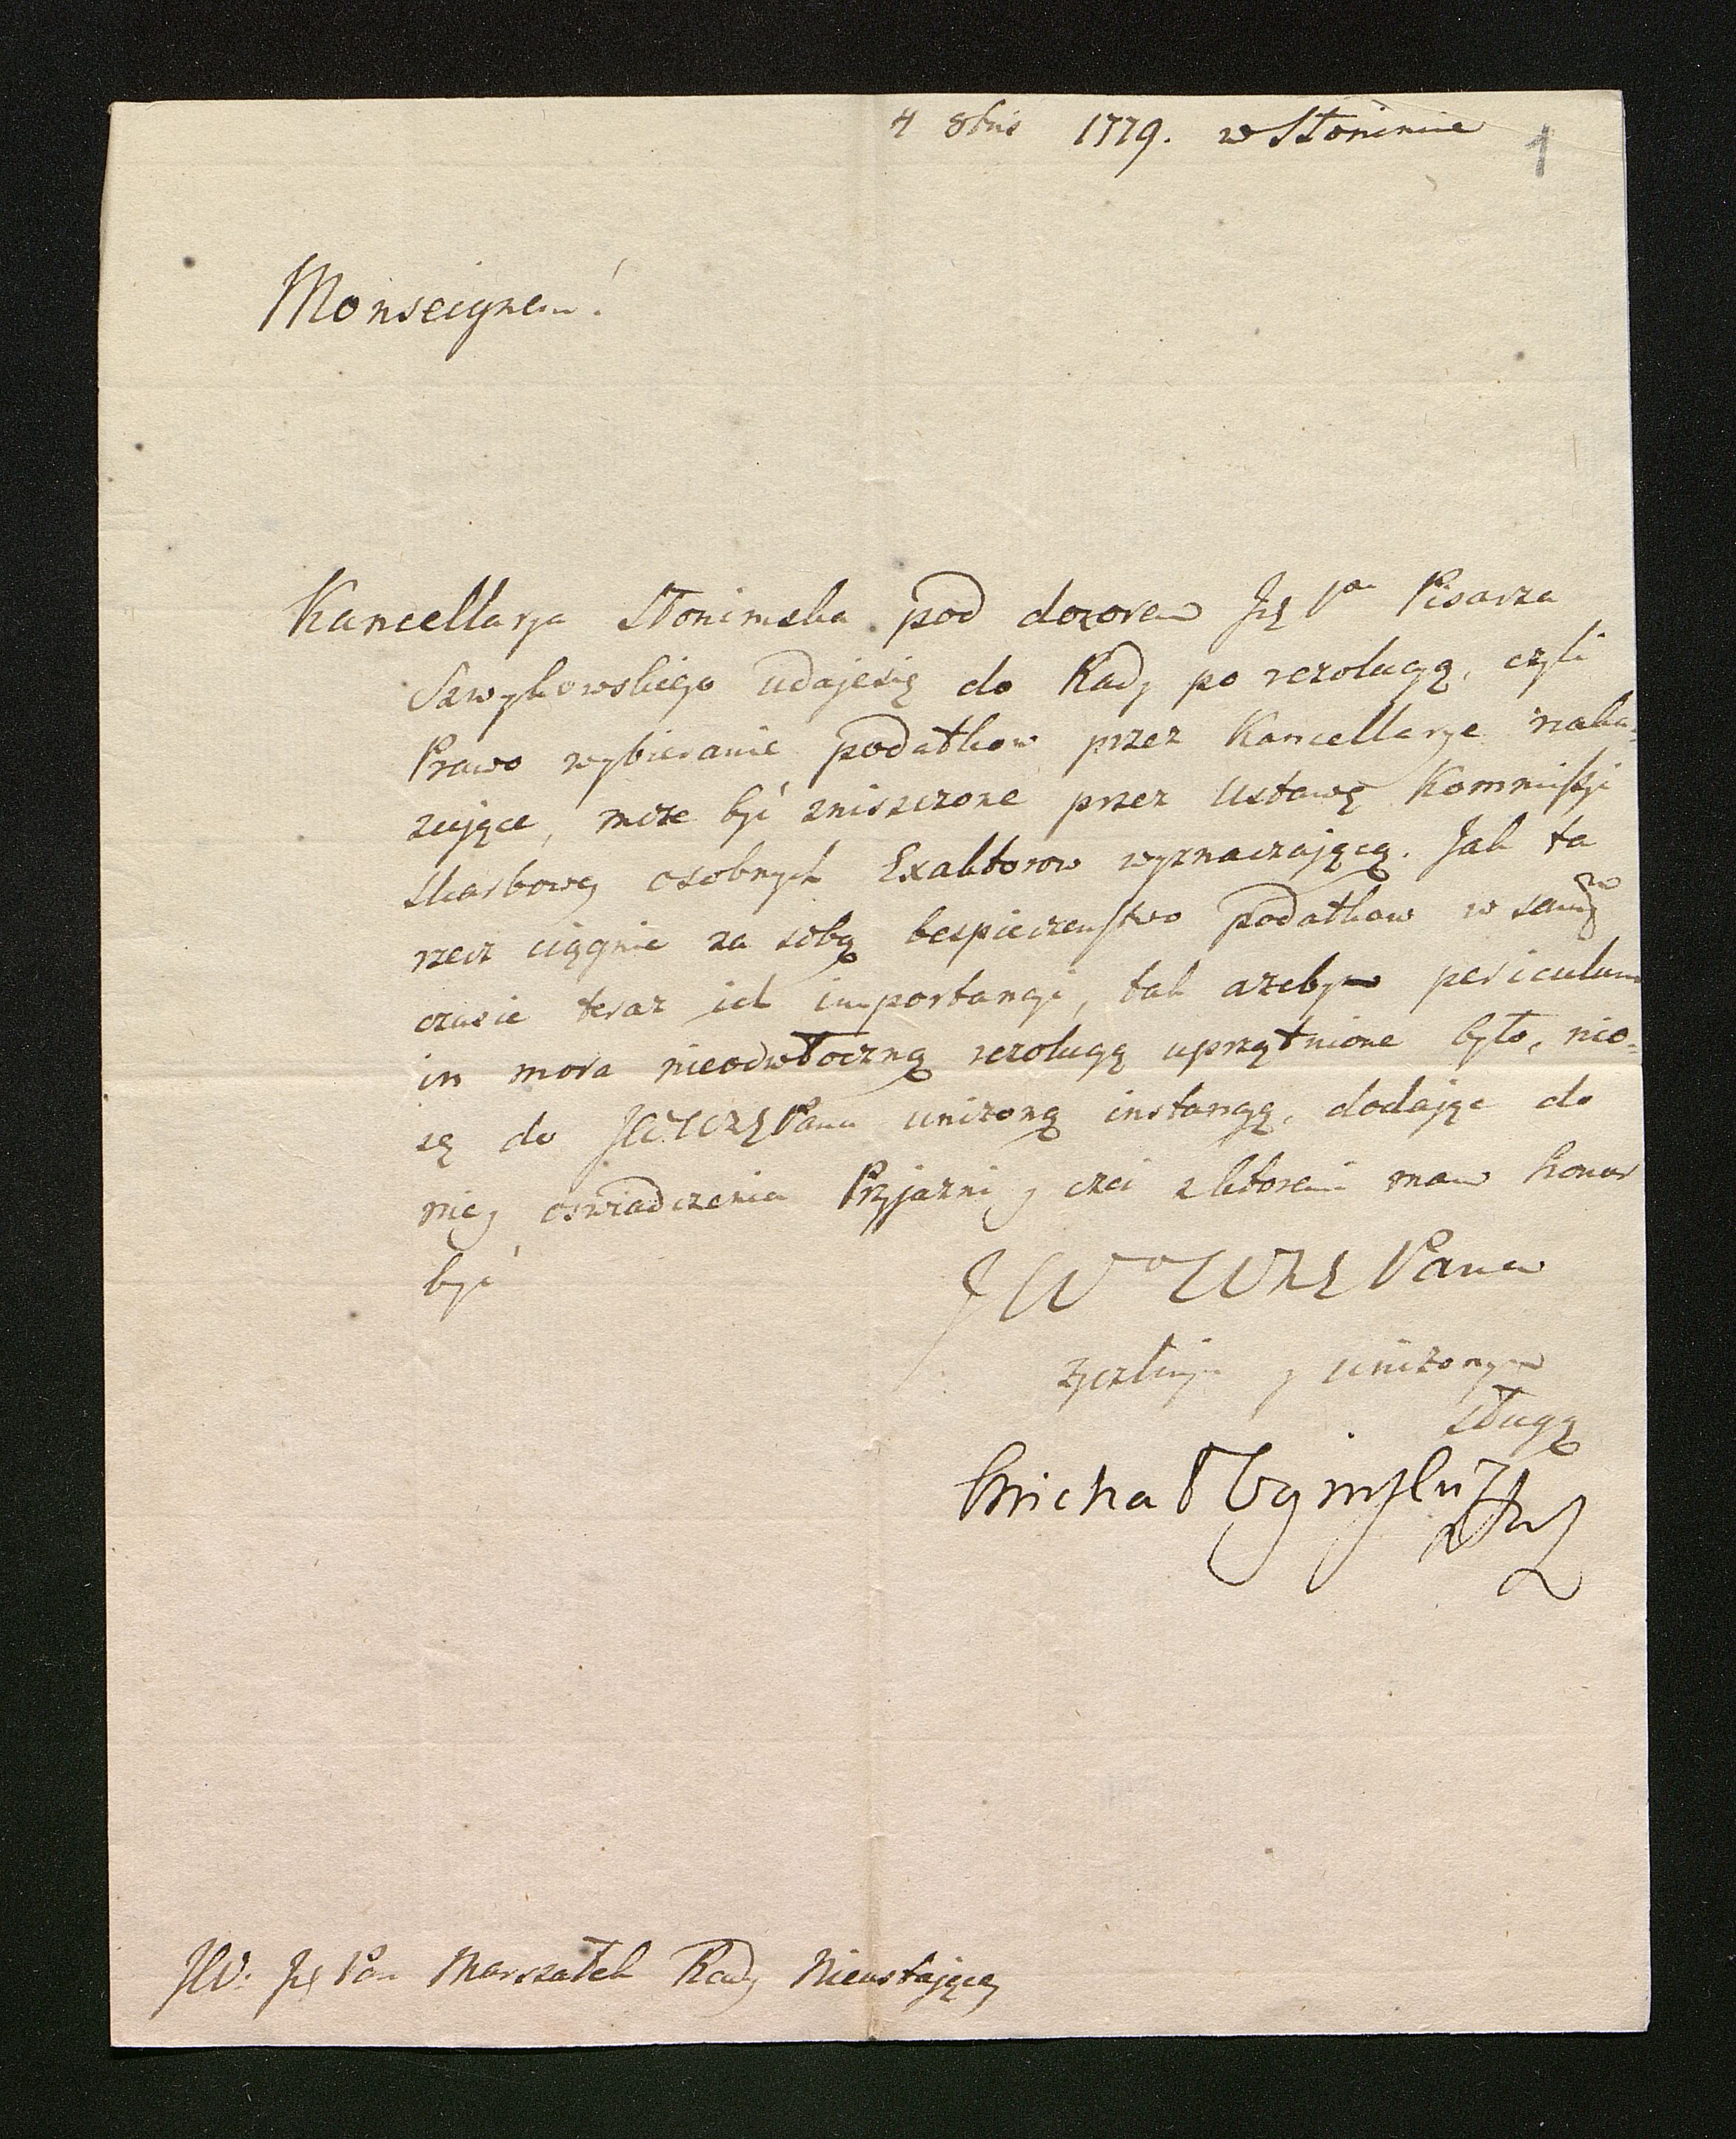 4 8bris 1779. w Słonimie
1
Monseigneur!
Kancellarya Słonimska pod dozorem Jgo Pa Pisarza
Szwykowskiego udajesię do Rady po rezolucyą, czyli
Prawo wybieranie podatkow przez Kancellarye naka-
zujące, może być zniszczone przez Ustawę Kommissyi
Skarbowey osobnych Exaktorow wyznaczającą. Jak ta
rzecz ciągnie za sobą bespieczenstwo podatkow w samym
czasie teraz ich importancyi, tak ażeby periculum
in mora nieodwłoczną rezolucyą uprzątnione było, nio-
sę do JWWMPana unizoną instancyą, dodając do
niey oswiadczenia Przyjazni y czci z ktoremi mam honor
być
JWo WM Pana
zyczliwym y unizonym
sługą
Michał Ogiński
JW. Jgo Pan Marszałek Rady Nieustającey